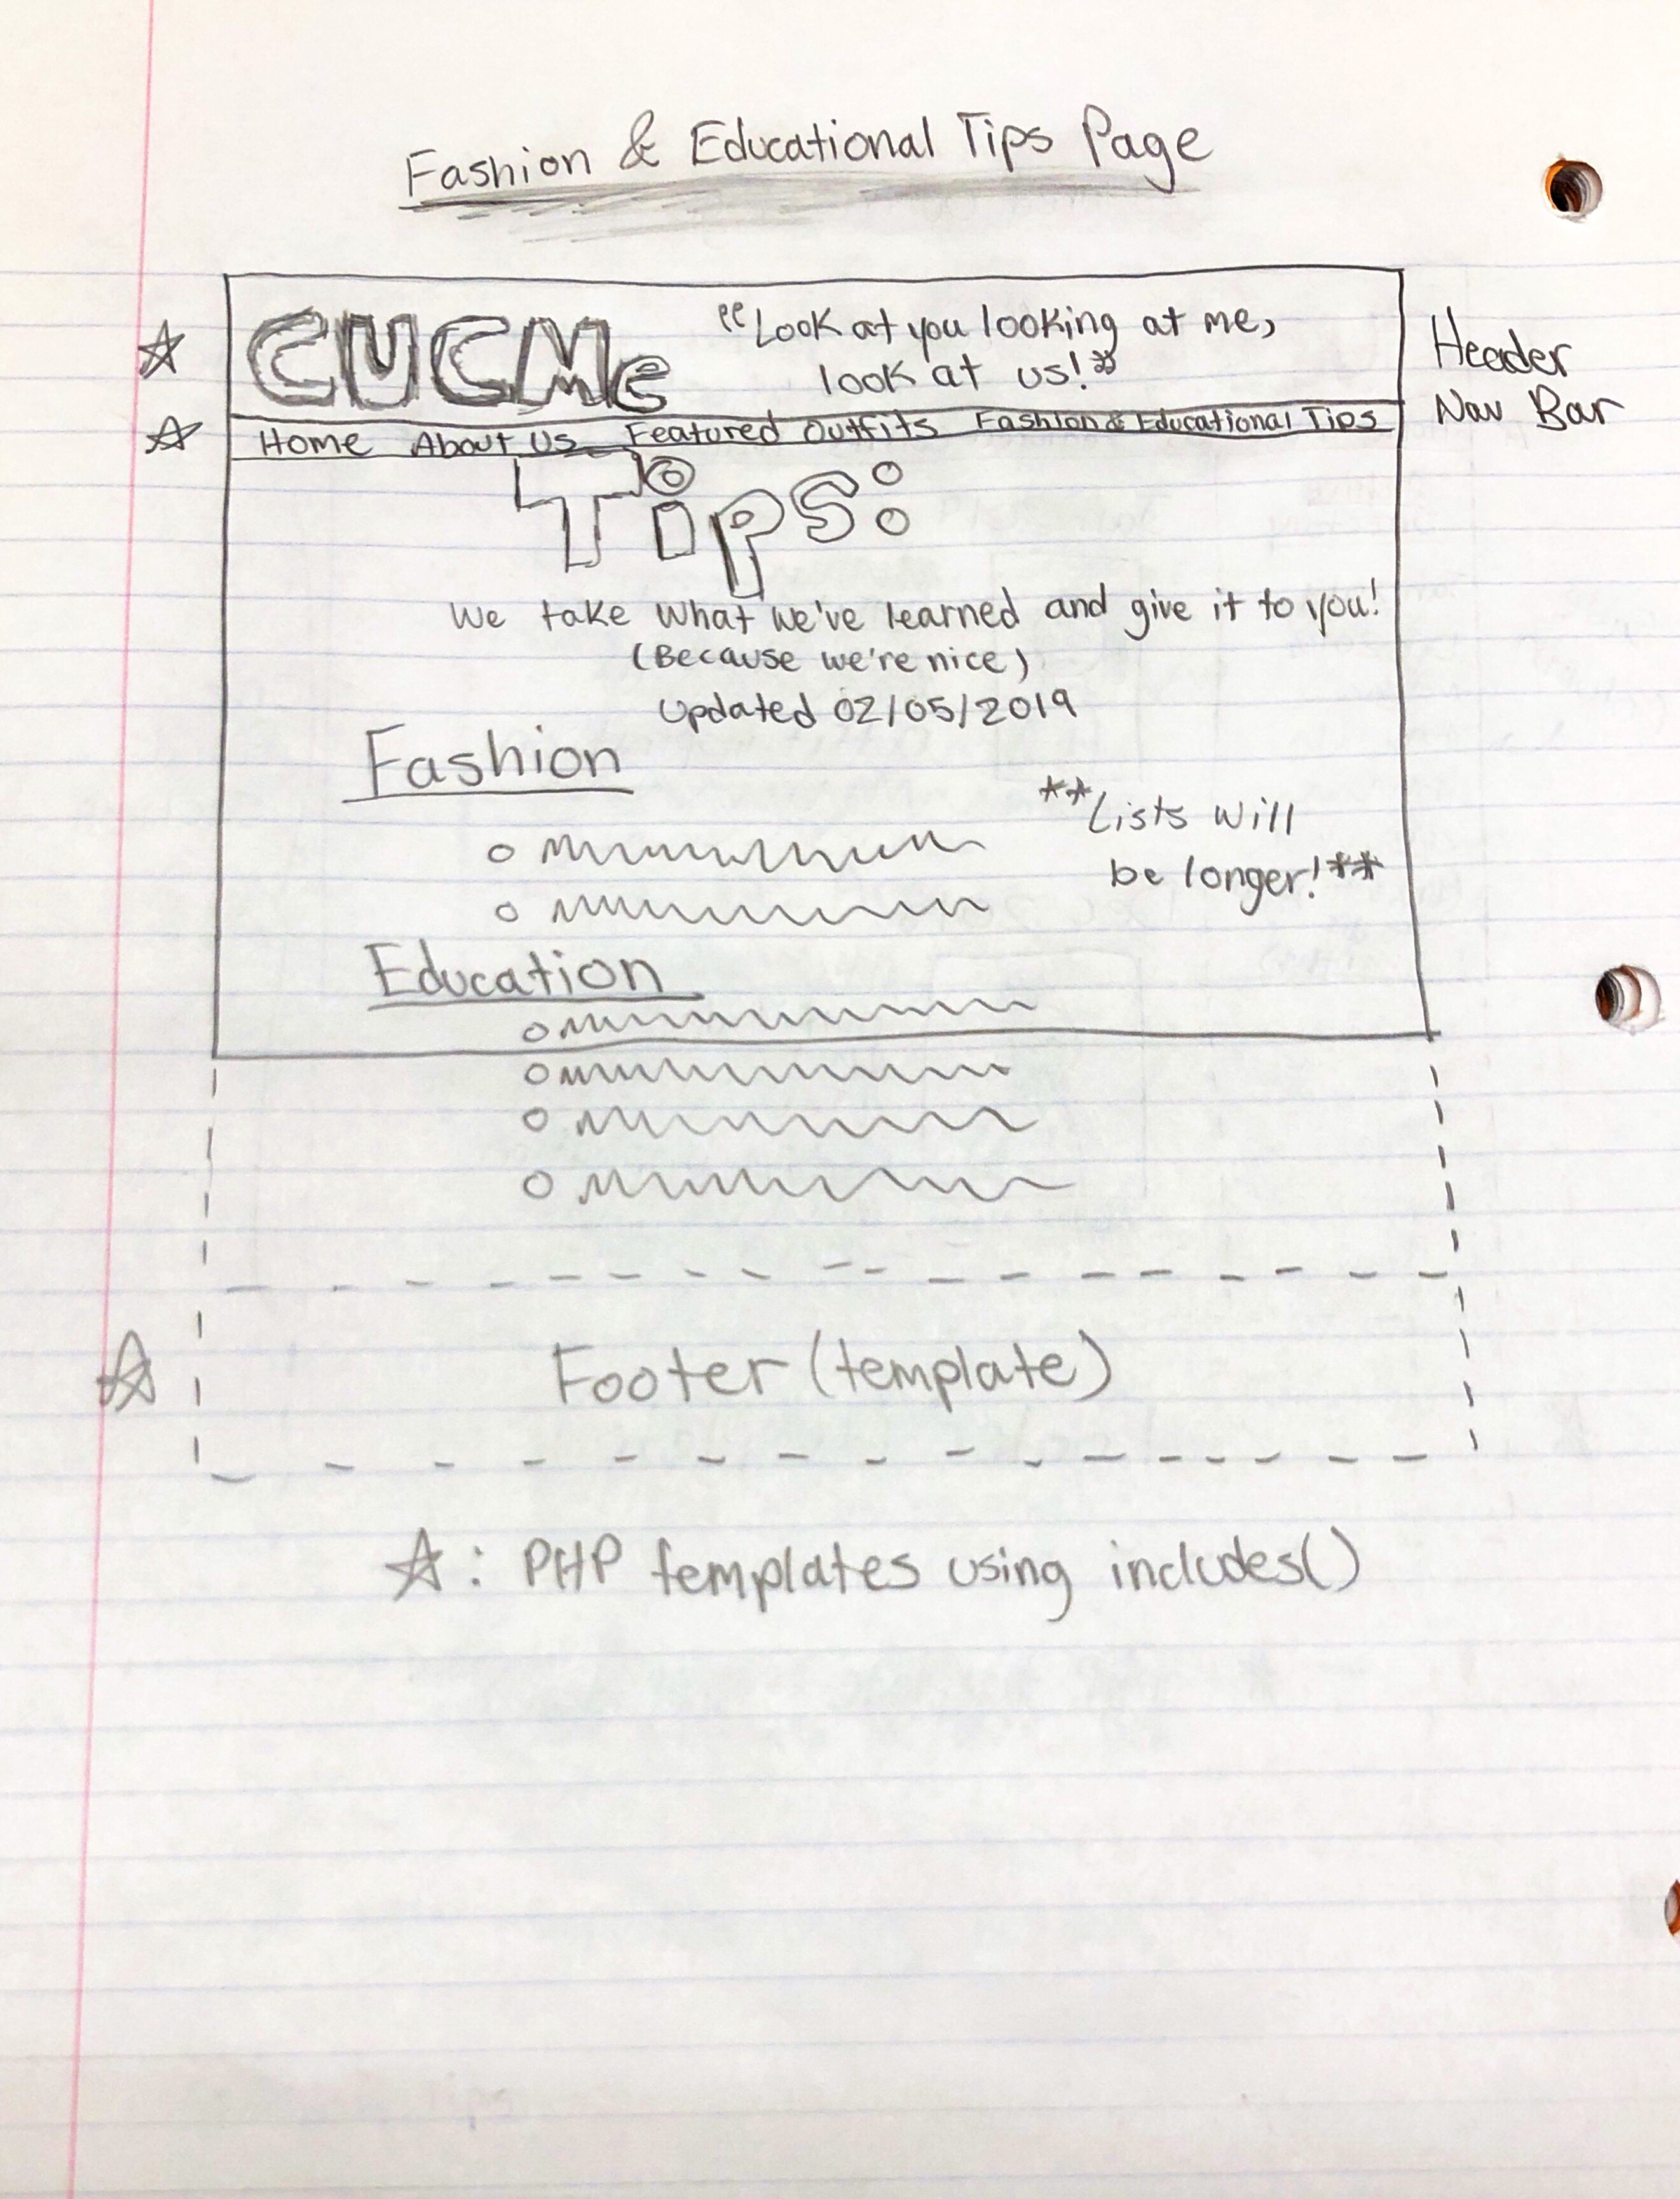 Fashion & Educational Tips Page
CUCMe
"Look at you looking at me,
look at us!"
Header
Nav Bar
Home About Us Featured Outfits Fashion & Educational Tips
Tips:
We take what we've learned and give it to you!
(Because we're nice)
Updated 02/05/2019
Fashion
**Lists will
be longer!**
Education
Footer (template)
☆: PHP templates using includes()